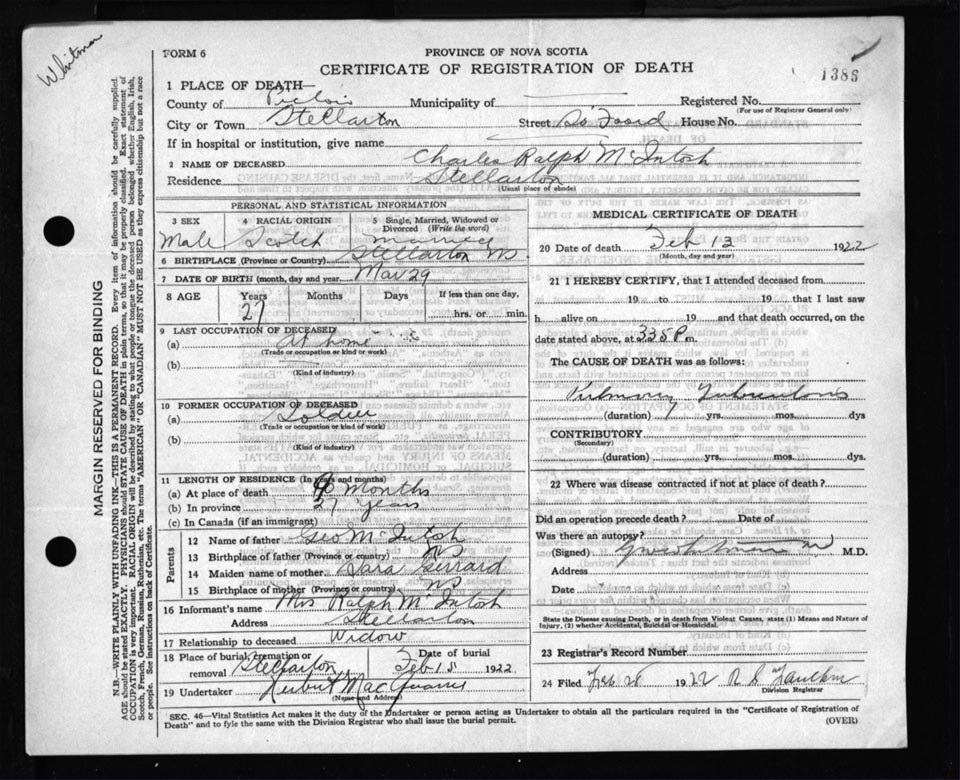 Whitman
FORM 6
PROVINCE OF NOVA SCOTIA
CERTIFICATE OF REGISTRATION OF DEATH
1386
1 PLACE OF DEATH—
County of Pictou Municipality of Registered No.
(For use of Registrar General only)
City or Town Stellarton Street So Foord House No.
If in hospital or institution, give name
2 NAME OF DECEASED Charles Ralph McIntosh
Residence Stellarton
(Usual place of abode)
PERSONAL AND STATISTICAL INFORMATION
3 SEX 4 RACIAL ORIGIN 5 Single, Married, Widowed or Divorced (Write the word)
Male Scotch Married
6 BIRTHPLACE (Province or Country) Stellarton NS
7 DATE OF BIRTH (month, day and year) Mav 29
8 AGE Years Months Days If less than one day,
27 hrs. or min.
9 LAST OCCUPATION OF DECEASED
(a) At home
(Trade or occupation or kind or work)
(b)
(Kind of industry)
10 FORMER OCCUPATION OF DECEASED
(a) Soldier
(Trade or occupation or kind of work)
(b)
(Kind of industry)
11 LENGTH OF RESIDENCE (In years and months)
(a) At place of death 9 Months
(b) In province 27 years
(c) In Canada (if an immigrant)
Parents
12 Name of father Geo McIntosh
13 Birthplace of father (Province or country) NS
14 Maiden name of mother Sara
15 Birthplace of mother (Province or country) NS
16 Informant's name Mrs Ralph McIntosh
Address Stellarton
17 Relationship to deceased Widow
18 Place of burial, cremation or removal Stellarton Date of burial Feb 15 1922
19 Undertaker
(Name and Address)
MEDICAL CERTIFICATE OF DEATH
20 Date of death Feb 13 1922
(Month, day and year)
21 I HEREBY CERTIFY, that I attended deceased from
19 to 19 that I last saw
h alive on 19 and that death occurred, on
date stated above, at 3 35 P m.
The CAUSE OF DEATH was as follows:
Pulmonary Tuberculosis
(duration) 1 yrs. mos. dys
CONTRIBUTORY
(Secondary)
(duration) yrs. mos. dys
22 Where was disease contracted if not at place of death?
Did an operation precede death? Date of
Was there an autopsy?
(Signed) M.D.
Address
Date
State the Disease causing Death, or in death from Violent Causes, state (1) Means and Nature of
Injury, (2) whether Accidental, Suicidal or Homicidal.
23 Registrar's Record Number
24 Filed 1922
Division Registrar
SEC. 46—Vital Statistics Act makes it the duty of the Undertaker or person acting as Undertaker to obtain all the particulars required in the "Certificate of Registration of
Death" and to fyle the same with the Division Registrar who shall issue the burial permit.
(OVER)
MARGIN RESERVED FOR BINDING
N.B.—WRITE PLAINLY WITH UNFADING INK—THIS IS A PERMANENT RECORD. Every item of information should be carefully supplied.
AGE should be stated EXACTLY. PHYSICIANS should STATE CAUSE OF DEATH in plain terms, so that it may be properly classified. Exact statement of
OCCUPATION is very important. RACIAL ORIGIN will be described by stating to what people or tongue the deceased person belonged whether English, Irish,
Scotch, French, German, Russian, Ruthenian, etc. The terms "AMERICAN" OR "CANADIAN" MUST NOT BE USED as they express citizenship but not a race
or people. See instructions on back of Certificate.